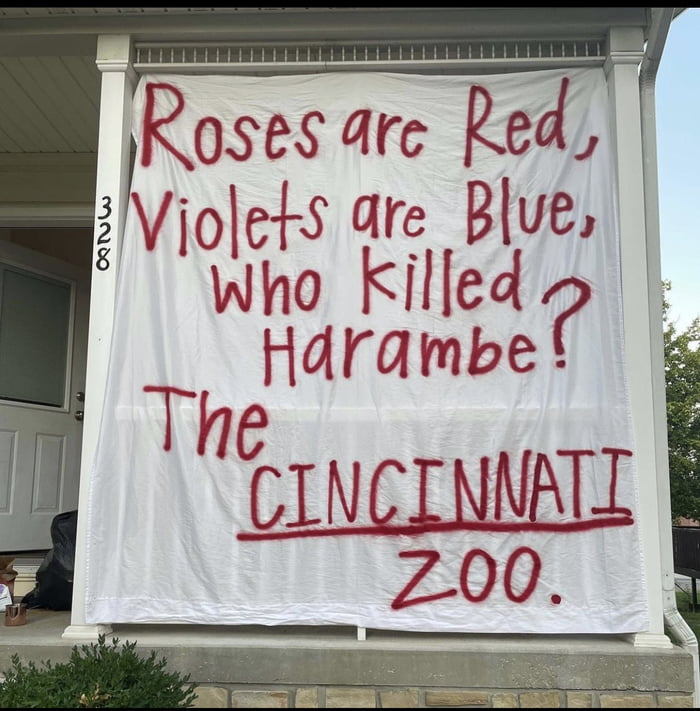 Roses are Red,
Violets are Blue,
Who killed
Harambe?
The
CINCINNATI
ZOO.
328